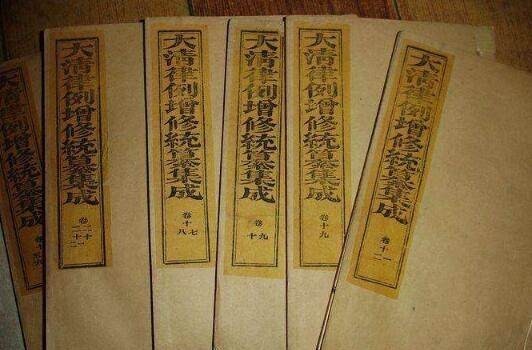 大清律例增修統纂集成
大清律例增修統纂集成
大清律例增修統纂集成
卷十七八
大清律例增修統纂集成
卷九十
大清律例增修統纂集成
卷十九
大清律例增修統纂集成